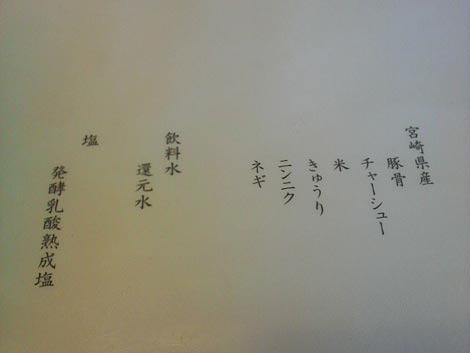 宮崎県産
豚骨
チャーシュー
米
きゅうり
ニンニク
ネギ
飲料水
還元水
塩
発酵乳酸熟成塩